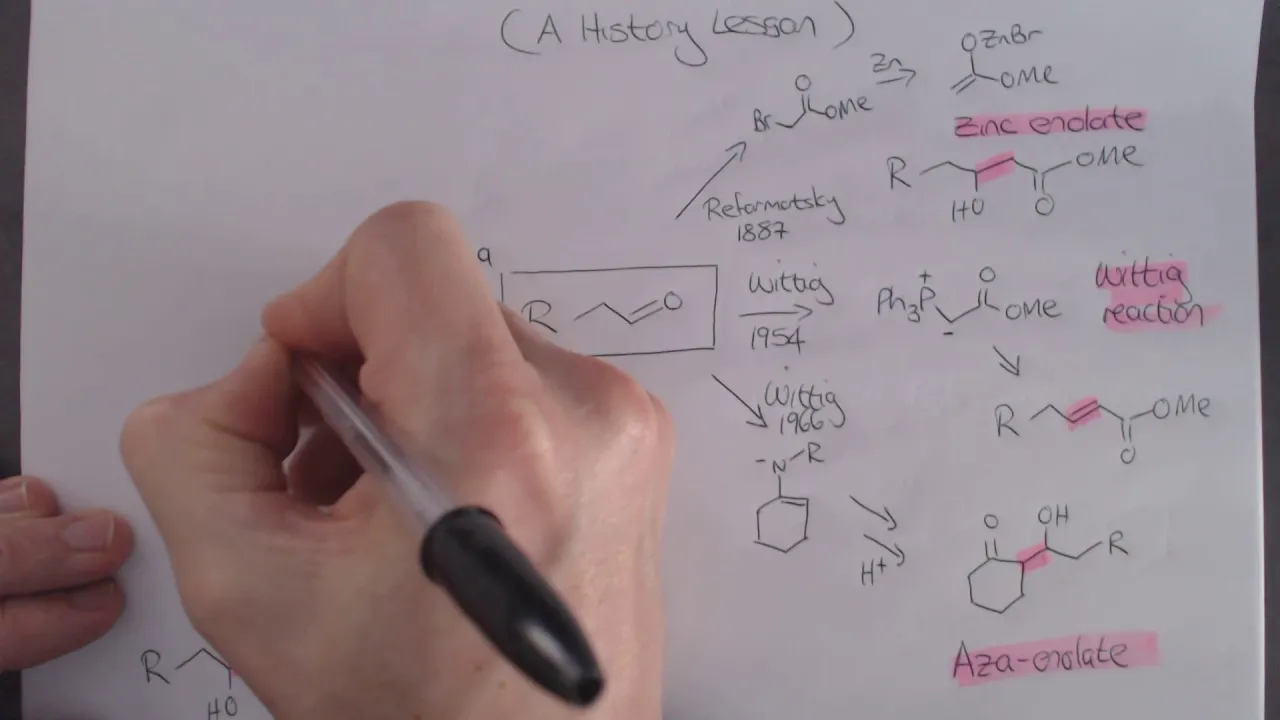 (A History Lesson)
OZnBr
Zn
O
OMe
Br
OMe
Zinc enolate
R
OMe
HO
O
Reformatsky
1887
R
O
Wittig
1954
+
Ph3P
-
O
OMe
Wittig
reaction
Wittig
1966
R
OMe
O
- N R
H+
O
OH
R
Aza-enolate
R
HO